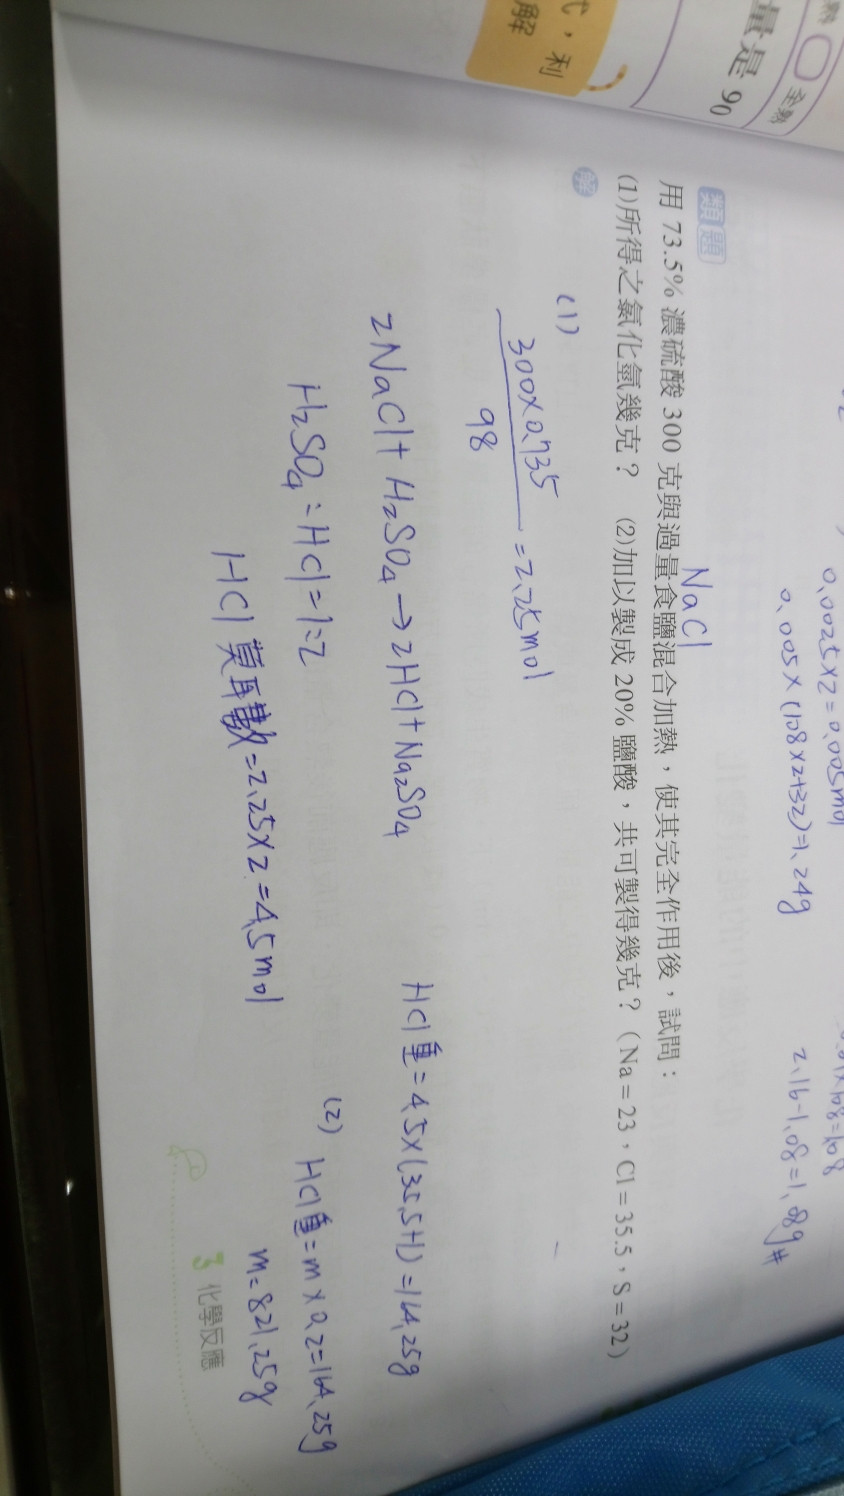 熱
全數
量是 90
式,利
解
0.0025×2=0.005mol
0.005×(108×2+32)=1.24g
2.16-1.08=1.08g#
類題
用 73.5% 濃硫酸 300 克與過量食鹽混合加熱,使其完全作用後,試問:
NaCl
(1)所得之氯化氫幾克? (2)加以製成 20% 鹽酸,共可製得幾克?(Na=23,Cl=35.5,S=32)
解
(1)
300×0.735
98
=2.25mol
2NaCl+H₂SO₄→2HCl+Na₂SO₄
H₂SO₄:HCl=1:2
HCl莫耳數=2.25×2=4.5mol
HCl重=4.5×(35.5+1)=164.25g
(2)
HCl重=m×0.2=164.25g
m=821.25g
3 化學反應